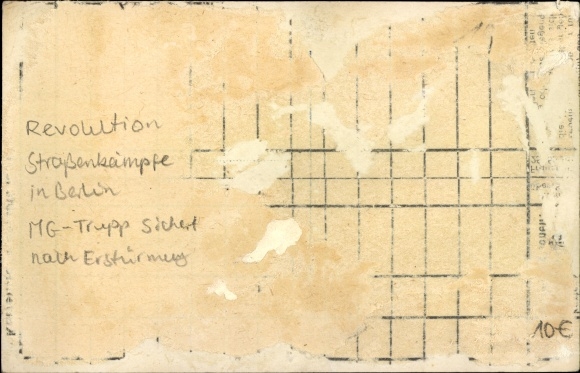 Revolution
Straßenkämpfe
in Berlin
MG-Trupp Sichert
nach Erstürmung
10€